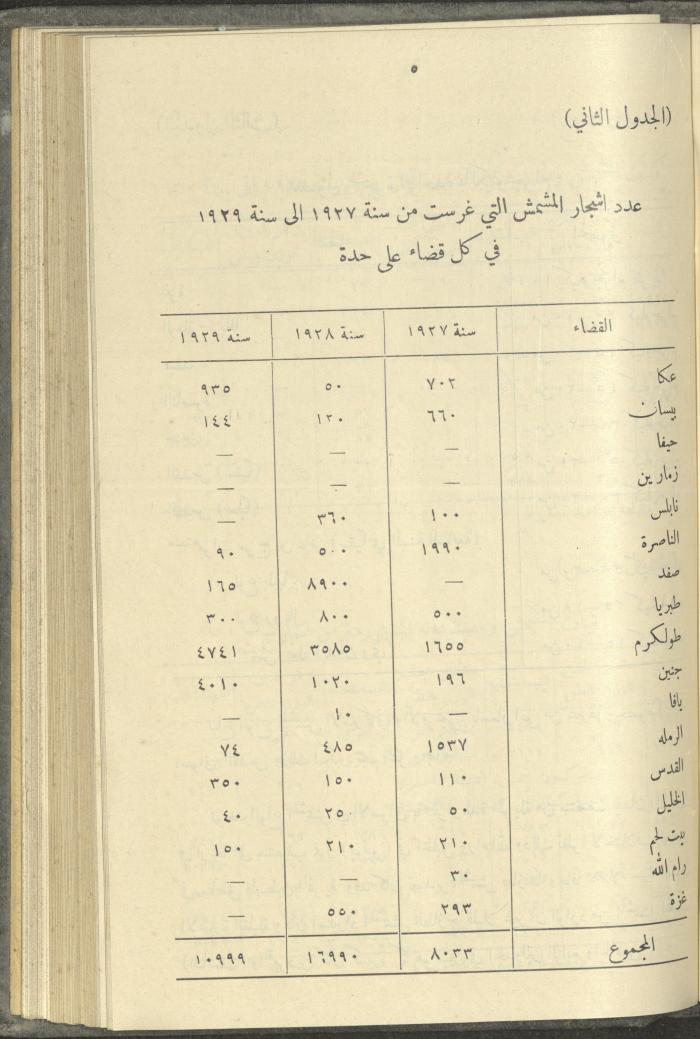 ٥
(الجدول الثاني)
عدد اشجار المشمش التي غرست من سنة ١٩٢٧ الى سنة ١٩٢٩
في كل قضاء على حدة
القضاء سنة ١٩٢٧ سنة ١٩٢٨ سنة ١٩٢٩
عكا ٧٠٢ ٥٠ ٩٣٥
بيسان ٦٦٠ ١٢٠ ١٤٤
حيفا — — —
زمارين — — —
نابلس ١٠٠ ٣٦٠ —
الناصرة ١٩٩٠ ٥٠٠ ٩٠
صفد — ٨٩٠٠ ١٦٥
طبريا ٥٠٠ ٨٠٠ ٣٠٠
طولكرم ١٦٥٥ ٣٥٨٥ ٤٧٤١
جنين ١٩٦ ١٠٢٠ ٤٠١٠
يافا — ١٠ —
الرمله ١٥٣٧ ٤٨٥ ٧٤
القدس ١١٠ ١٥٠ ٣٥٠
الخليل ٥٠ ٢٥٠ ٤٠
بيت لحم ٢١٠ ٢١٠ ١٥٠
رام الله ٣٠ — —
غزة ٢٩٣ ٥٥٠ —
المجموع ٨٠٣٣ ١٦٩٩٠ ١٠٩٩٩